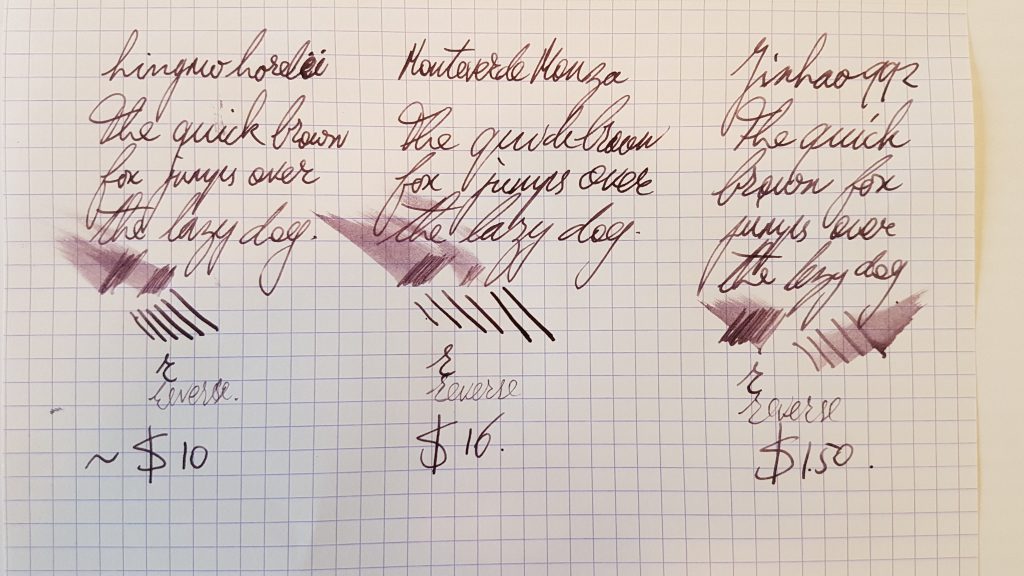 Montaverde Monza
Jinhao 992
The quick brown
fox jumps over
the lazy dog.
The quick brown
fox jumps over
the lazy dog.
The quick
brown fox
jumps over
the lazy dog
r
reverse.
~ $10
r
reverse
$16.
r
reverse
$1.50.